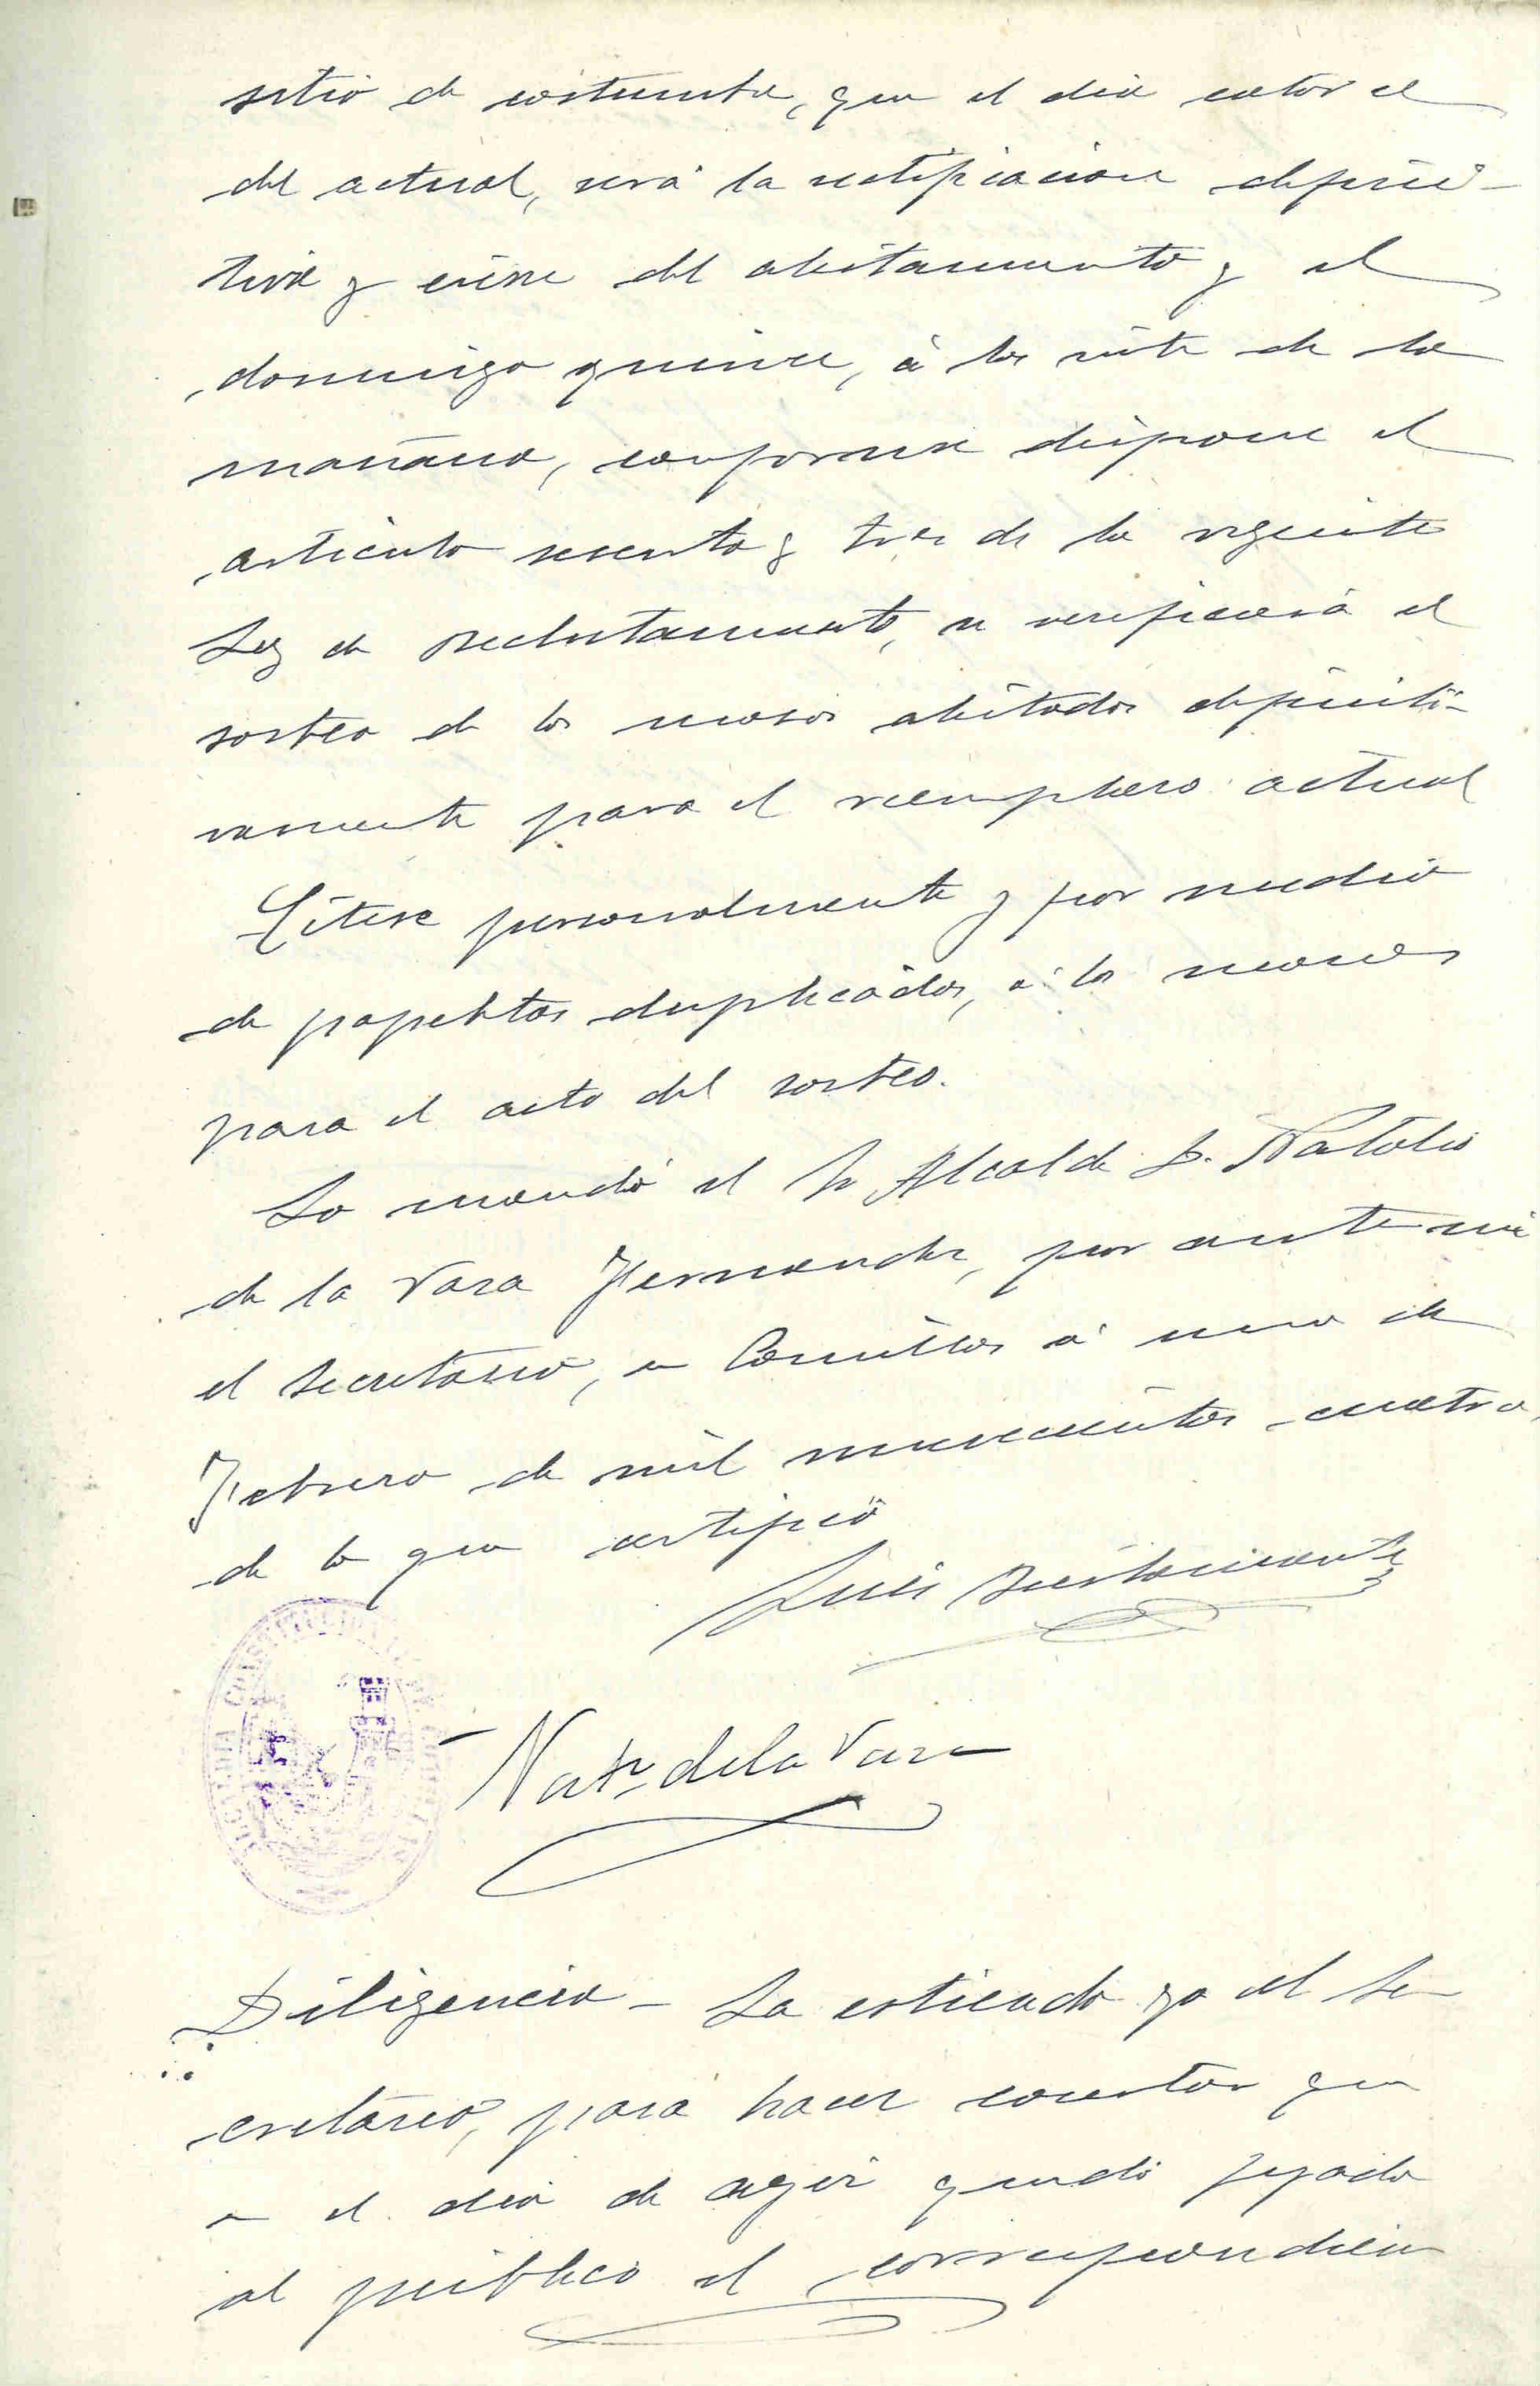 sitio de costumbre, que el dia catorce
del actual, será la rectificacion defini-
tiva y cierre del alistamiento y el
domingo quince, á las siete de la
mañana, conforme dispone el
articulo sesenta y tres de la vigente
Ley de reclutamiento, se verificará el
sorteo de los mozos alistados definiti-
vamente para el reemplazo actual
Citese personalmente y por medio
de papeletas duplicadas, á los mozos
para el acto del sorteo.
Lo mandó el Sr Alcalde D. Natalio
de la Vara Fernandez, por ante mi
el Secretario, en Comillas á uno de
Febrero de mil novecientos cuatro
de lo que certifico
Luis Bustamante
Nat.º de la Vara
ALCALDIA CONSTITUCIONAL
Diligencia - La estiendo yo el Se-
cretario, para hacer constar que
en el dia de ayer quedó fijado
al público el correspondien